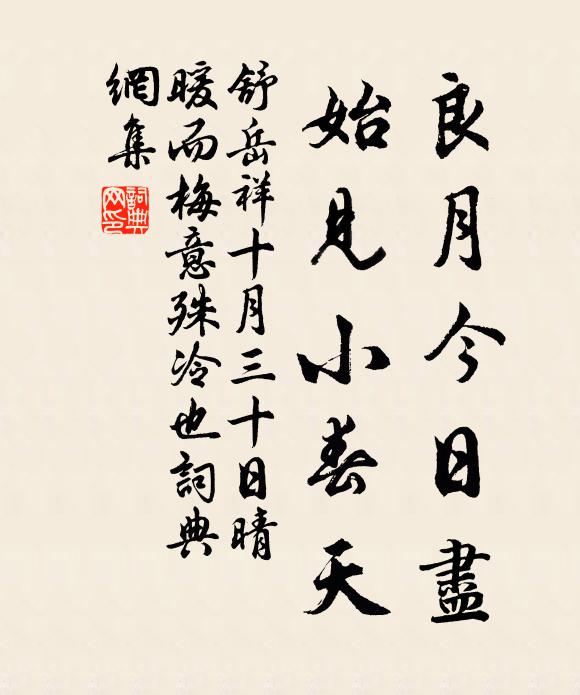 良月今日盡
始見小春天
舒岳祥十月三十日晴
暖而梅意殊冷也詞典
網集
詞典
网印